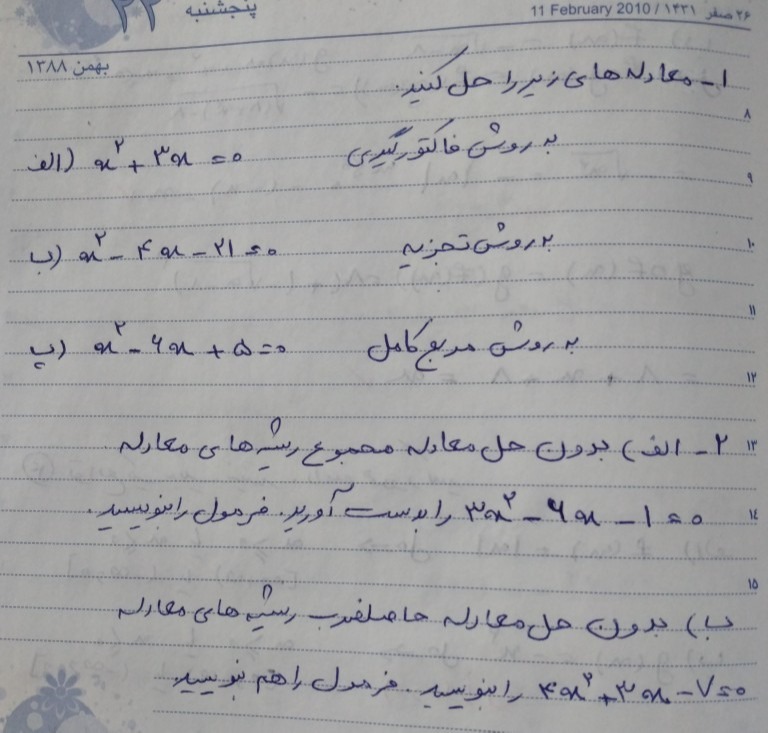 پنجشنبه ۲۲
۲۶ صفر ۱۴۳۱ / 11 February 2010
بهمن ۱۳۸۸
۱- معادله های زیر را حل کنید.
۸
الف) x² + ۳x = ۰ به روش فاکتورگیری
۹
ب) x² - ۴x - ۲۱ = ۰ به روش تجزیه
۱۰
۱۱
پ) x² - ۶x + ۵ = ۰ به روش مربع کامل
۱۲
۲- الف) بدون حل معادله مجموع ریشه های معادله
۱۳
۳x² - ۶x - ۱ = ۰ را بدست آورید. فرمول را بنویسید.
۱۴
۱۵
ب) بدون حل معادله حاصلضرب ریشه های معادله
۴x² + ۳x - ۷ = ۰ را بنویسید. فرمول را هم بنویسید